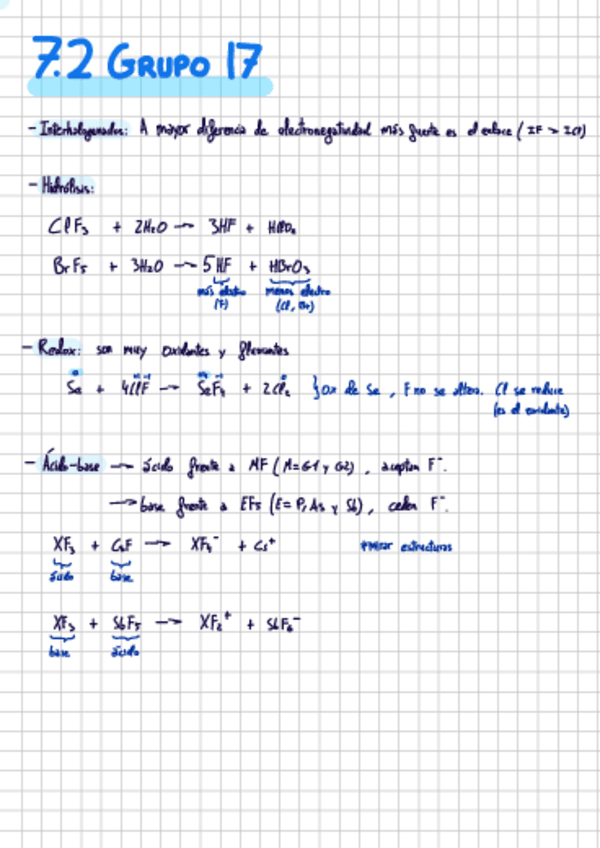 7.2 GRUPO 17
- Interhalogenados: A mayor diferencia de electronegatividad más fuerte es el enlace (IF > ICl)
- Hidrólisis:
ClF₃ + 2H₂O → 3HF + HClO₂
BrF₅ + 3H₂O → 5HF + HBrO₃
más electro menos electro
(F) (Cl, Br)
- Redox: son muy oxidantes y fluorantes
Se + 4ClF → SeF₄ + 2Cl₂ } ox de Se, F no se altera. Cl se reduce
(es el oxidante)
- Ácido-base → ácido frente a MF (M=G1 y G2), aceptan F⁻.
→ base frente a EF₅ (E= P, As y Sb), ceden F⁻.
XF₃ + CsF → XF₄⁻ + Cs⁺ estructuras
ácido base
XF₃ + SbF₅ → XF₂⁺ + SbF₆⁻
base ácido